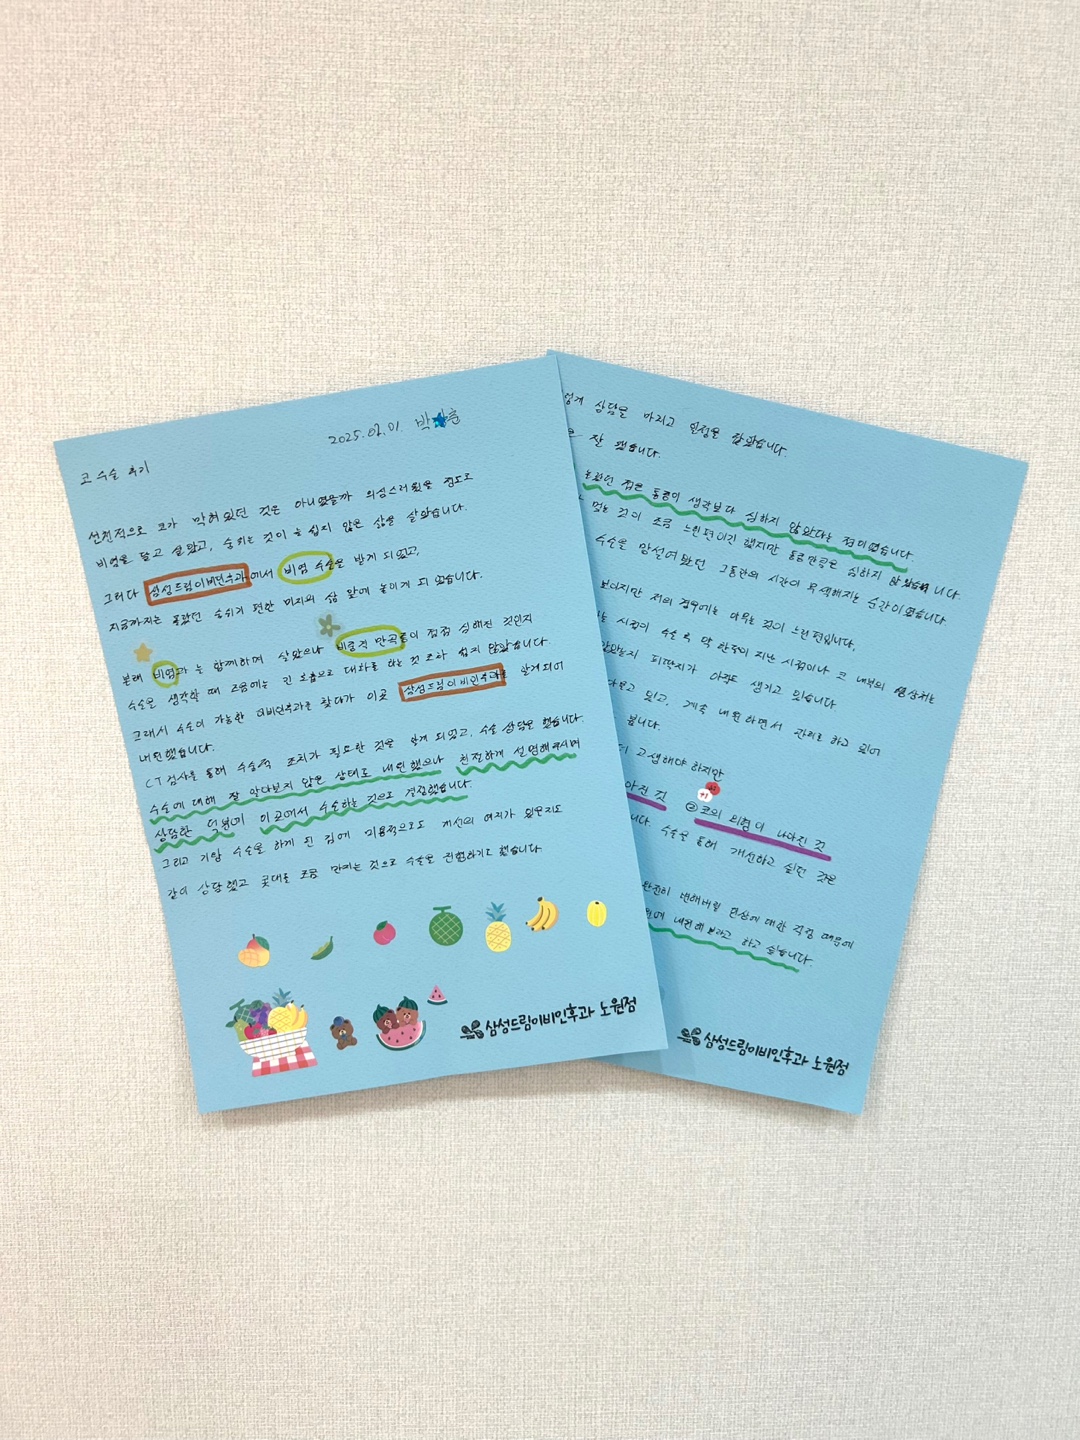 2025.02.01. 박 훈
코 수술 후기
선천적으로 코가 막혀있던 것은 아니였을까 의심스러웠을 정도로
비염을 달고 살았고, 숨쉬는 것이 늘 쉽지 않은 삶을 살았습니다.
그러다 삼성드림이비인후과에서 비염 수술을 받게 되었고,
지금까지는 몰랐던 숨쉬기 편한 미지의 삶 앞에 놓이게 되었습니다.
본래 비염과는 함께하며 살았으나 비중격 만곡증이 점점 심해진 것인지
수술을 생각할 때 즈음에는 긴 호흡으로 대화를 하는 것 조차 쉽지 않았습니다.
그래서 수술이 가능한 이비인후과를 찾다가 이곳 삼성드림이비인후과를 알게되어
내원했습니다.
CT 검사를 통해 수술적 조치가 필요한 것을 알게 되었고, 수술 상담을 했습니다.
수술에 대해 잘 알아보지 않은 상태로 내원했으나 친절하게 설명해주시며
상담한 덕분에 이곳에서 수술하는 것으로 결정했습니다.
그리고 기왕 수술을 하게 된 김에 미용적으로도 개선의 여지가 있을지도
같이 상담했고 콧대를 조금 만지는 것으로 수술을 진행하기로 했습니다.
삼성드림이비인후과 노원점
렇게 상담을 마치고 일정을 잡았습니다.
잘 됐습니다.
놀라언 점은 통증이 생각보다 심하지 않았다는 점이였습니다.
먹는 것이 조금 느린편이긴 했지만 통증만큼은 심하지 않았습니다.
수술을 망설여왔던 그동안의 시간이 무색해지는 순간이였습니다
보이지만 저의 경우에는 아무는 것이 느린 편입니다.
시점이 수술 후 막 한달이 지난 시점이나 코 내부의 상처는
피딱지가 아직도 생기고 있습니다
다오고 있고, 계속 내원하면서 관리를 하고 있어
봅니다.
더 고생해야 하지만
아진 것 +1 ② 코의 외형이 나아진 것
니다. 수술을 통해 개선하고 싶던 것은
완전히 변해버릴 인상에 대한 걱정 때문에
내원해보라고 하고 싶습니다.
삼성드림이비인후과 노원점